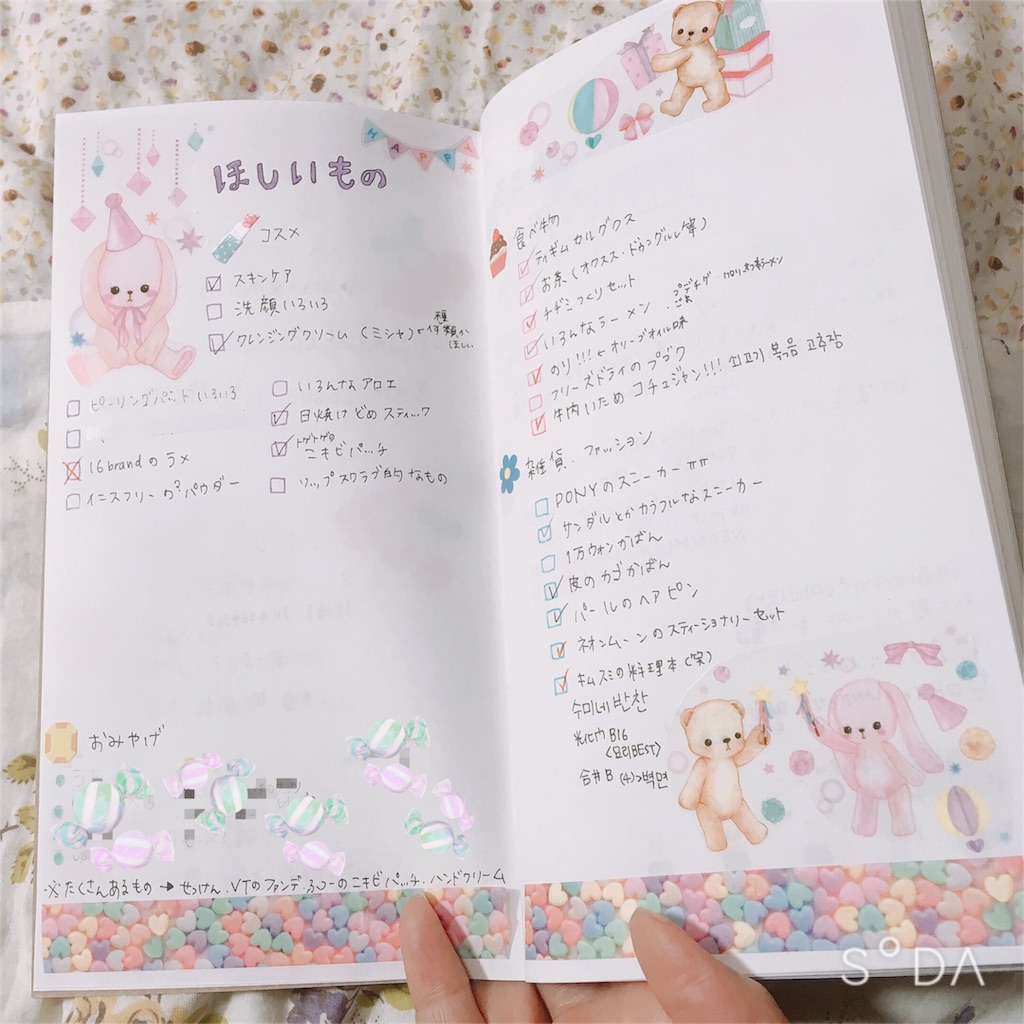 HAPPY
ほしいもの
コスメ
スキンケア
洗顔いろいろ
クレンジングクリーム (ミシャ)←何種類かほしい
ピーリングパッドいろいろ
16brandのラメ
イニスフリーの?パウダー
いろんなアロエ
日焼けどめスティック
トゲトゲのニキビパッチ
リップスクラブ的なもの
おみやげ
※たくさんあるもの → せっけん.VTのファンデ.ニキビパッチ.ハンドクリーム
食べ物
カルグクス
お茶(オクスス・ドゥングルレ等)
チヂミつくりセット
いろんなラーメン
のり!!!←オリーブオイル味
フリーズドライのプゴク
牛肉いためコチュジャン!!! 쇠고기 볶음 고추장
雑貨.ファッション
PONYのスニーカーㅠㅠ
サンダルとかカラフルなスニーカー
1万ウォンかばん
皮のカゴかばん
パールのヘアピン
ネオンムーンのスティーショナリーセット
キムスミの料理本(笑)
수미네 반찬
B16
<요리BEST>
B (4)>벽면
SODA